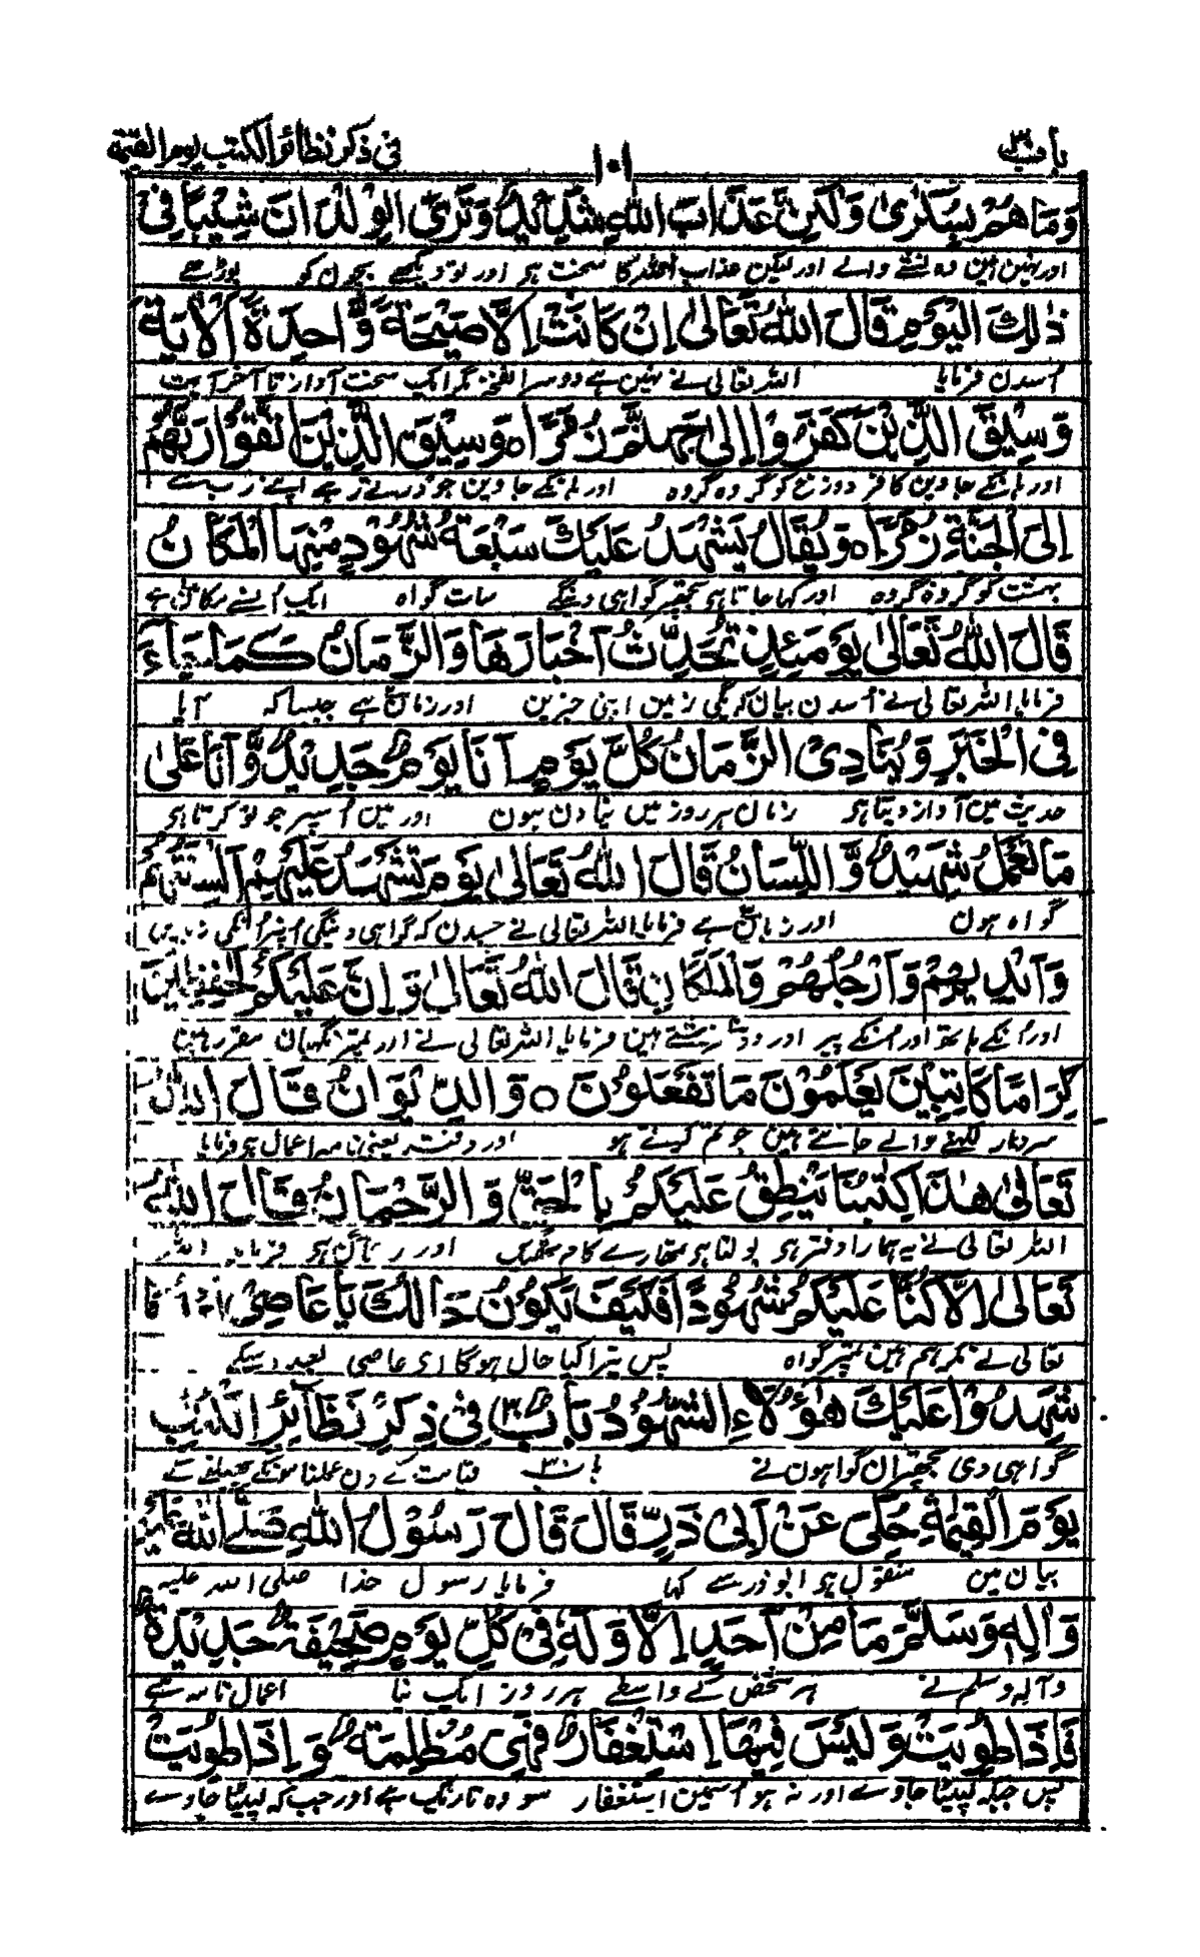 باب ۳۰
۱۰۱
فی ذکر نظائر الکتب یوم القیمة
وَمَا هُمْ بِسُكٰرٰى وَلٰكِنَّ عَذَابَ اللّٰهِ شَدِیْدٌ وَتَرَى الْوِلْدَانَ شِیْبًا فِیْ
اور نہین ہین وہ نشے والے اور لیکن عذاب اللہ کا سخت ہو اور تو دیکھے بچون کو بوڑھے
ذٰلِكَ الْیَوْمِ قَالَ اللّٰهُ تَعَالٰى اِنْ كَانَتْ اِلَّا صَیْحَةً وَّاحِدَةً اَلْاٰیَة
اُسدن فرمایا اللہ تعالی نے نہین ہے دوسرا نفخہ مگر ایک سخت آواز تا آخر آیت
وَسِیْقَ الَّذِیْنَ كَفَرُوْا اِلٰى جَهَنَّمَ زُمَرًا ہ وَسِیْقَ الَّذِیْنَ اتَّقَوْا رَبَّهُمْ
اور ہانکے جاوین کافر دوزخ کو گروہ گروہ اور ہانکے جاوین جو ڈرتے رہے اپنے رب سے
اِلَى الْجَنَّةِ زُمَرًا ہ وَیُقَالُ یَشْهَدُ عَلَیْكَ سَبْعَةُ شُهُوْدٍ مِنْهَا الْمَكَانُ
بہشت کو گروہ گروہ اور کہا جاتا ہو تجھپر گواہی دینگے سات گواہ ایک اُنسے مکان ہے
قَالَ اللّٰهُ تَعَالٰى یَوْمَئِذٍ تُحَدِّثُ اَخْبَارَهَا وَالزَّمَانُ كَمَا جَاءَ
فرمایا اللہ تعالی نے اُسدن بیان کریگی زمین اپنی خبرین اور زمان ہے جیسا کہ آیا
فِی الْخَبَرِ وَیُنَادِیْ الزَّمَانُ كُلَّ یَوْمٍ اَنَا یَوْمٌ جَدِیْدٌ وَّاَنَا عَلٰى
حدیث مین آواز دیتا ہو زمان ہر روز مین نیا دن ہون اور مین اُسپر جو تو کرتا ہو
مَا تَعْمَلُ شَهِیْدٌ وَّاللِّسَانُ قَالَ اللّٰهُ تَعَالٰى یَوْمَ تَشْهَدُ عَلَیْهِمْ اَلْسِنَتُهُمْ
گواہ ہون اور زبان ہے فرمایا اللہ تعالی نے جسدن کہ گواہی دینگی اُنپر اُنکی زبانین
وَاَیْدِیْهِمْ وَاَرْجُلُهُمْ وَالْمَلَكَانِ قَالَ اللّٰهُ تَعَالٰى وَاِنَّ عَلَیْكُمْ لَحٰفِظِیْنَ
اور اُنکے ہاتھ اور اُنکے پیر اور دو فرشتے ہین فرمایا اللہ تعالی نے اور تمپر نگہبان مقرر ہین
كِرَامًا كَاتِبِیْنَ یَعْلَمُوْنَ مَا تَفْعَلُوْنَ ہ وَالدِّیْوَانُ قَالَ اللّٰهُ
سردار لکھنے والے جانتے ہین جو تم کرتے ہو اور دفتر یعنی نامہ اعمال ہو فرمایا
تَعَالٰى هٰذَا كِتٰبُنَا یَنْطِقُ عَلَیْكُمْ بِالْحَقِّ وَالرَّحْمَانُ قَالَ اللّٰهُ
اللہ تعالی نے یہ ہمارا دفتر ہو بولتا ہو تمھارے کام اور رحمان ہو فرمایا اللہ
تَعَالٰى اِلَّا كُنَّا عَلَیْكُمْ شُهُوْدًا فَكَیْفَ یَكُوْنُ حَالُكَ یَا عَاصِیْ
تعالی نے مگر ہم ہین تمپر گواہ پس تیرا کیا حال ہوگا ای عاصی بعد اسکے
شَهِدُوْا عَلَیْكَ هٰؤُلَاءِ الشُّهُوْدُ بَابُ ۳۰ فِیْ ذِكْرِ نَظَائِرِ الْكُتُبِ
گواہی دی تجھپر ان گواہون نے باب ۳۰ قیامت کے دن عملنامونکے پھیلنے کے
یَوْمَ الْقِیٰمَةِ حُكِیَ عَنْ اَبِیْ ذَرٍّ قَالَ قَالَ رَسُوْلُ اللّٰهِ صَلَّى اللّٰهُ عَلَیْهِ
بیان مین منقول ہو ابوذر سے کہا فرمایا رسول خدا صلی اللہ علیہ
وَاٰلِهٖ وَسَلَّمَ مَا مِنْ اَحَدٍ اِلَّا وَلَهٗ فِیْ كُلِّ یَوْمٍ صَحِیْفَةٌ جَدِیْدَةٌ
وآلہ وسلم نے ہر شخص کے واسطے ہر روز ایک نیا اعمال نامہ ہے
فَاِذَا طُوِیَتْ وَلَیْسَ فِیْهَا اِسْتِغْفَارٌ فَهِیَ مُظْلِمَةٌ وَاِذَا طُوِیَتْ
پس جبکہ لپیٹا جاوے اور نہ ہو اُسمین استغفار سو وہ تاریک ہے اور جب کہ لپیٹا جاوے